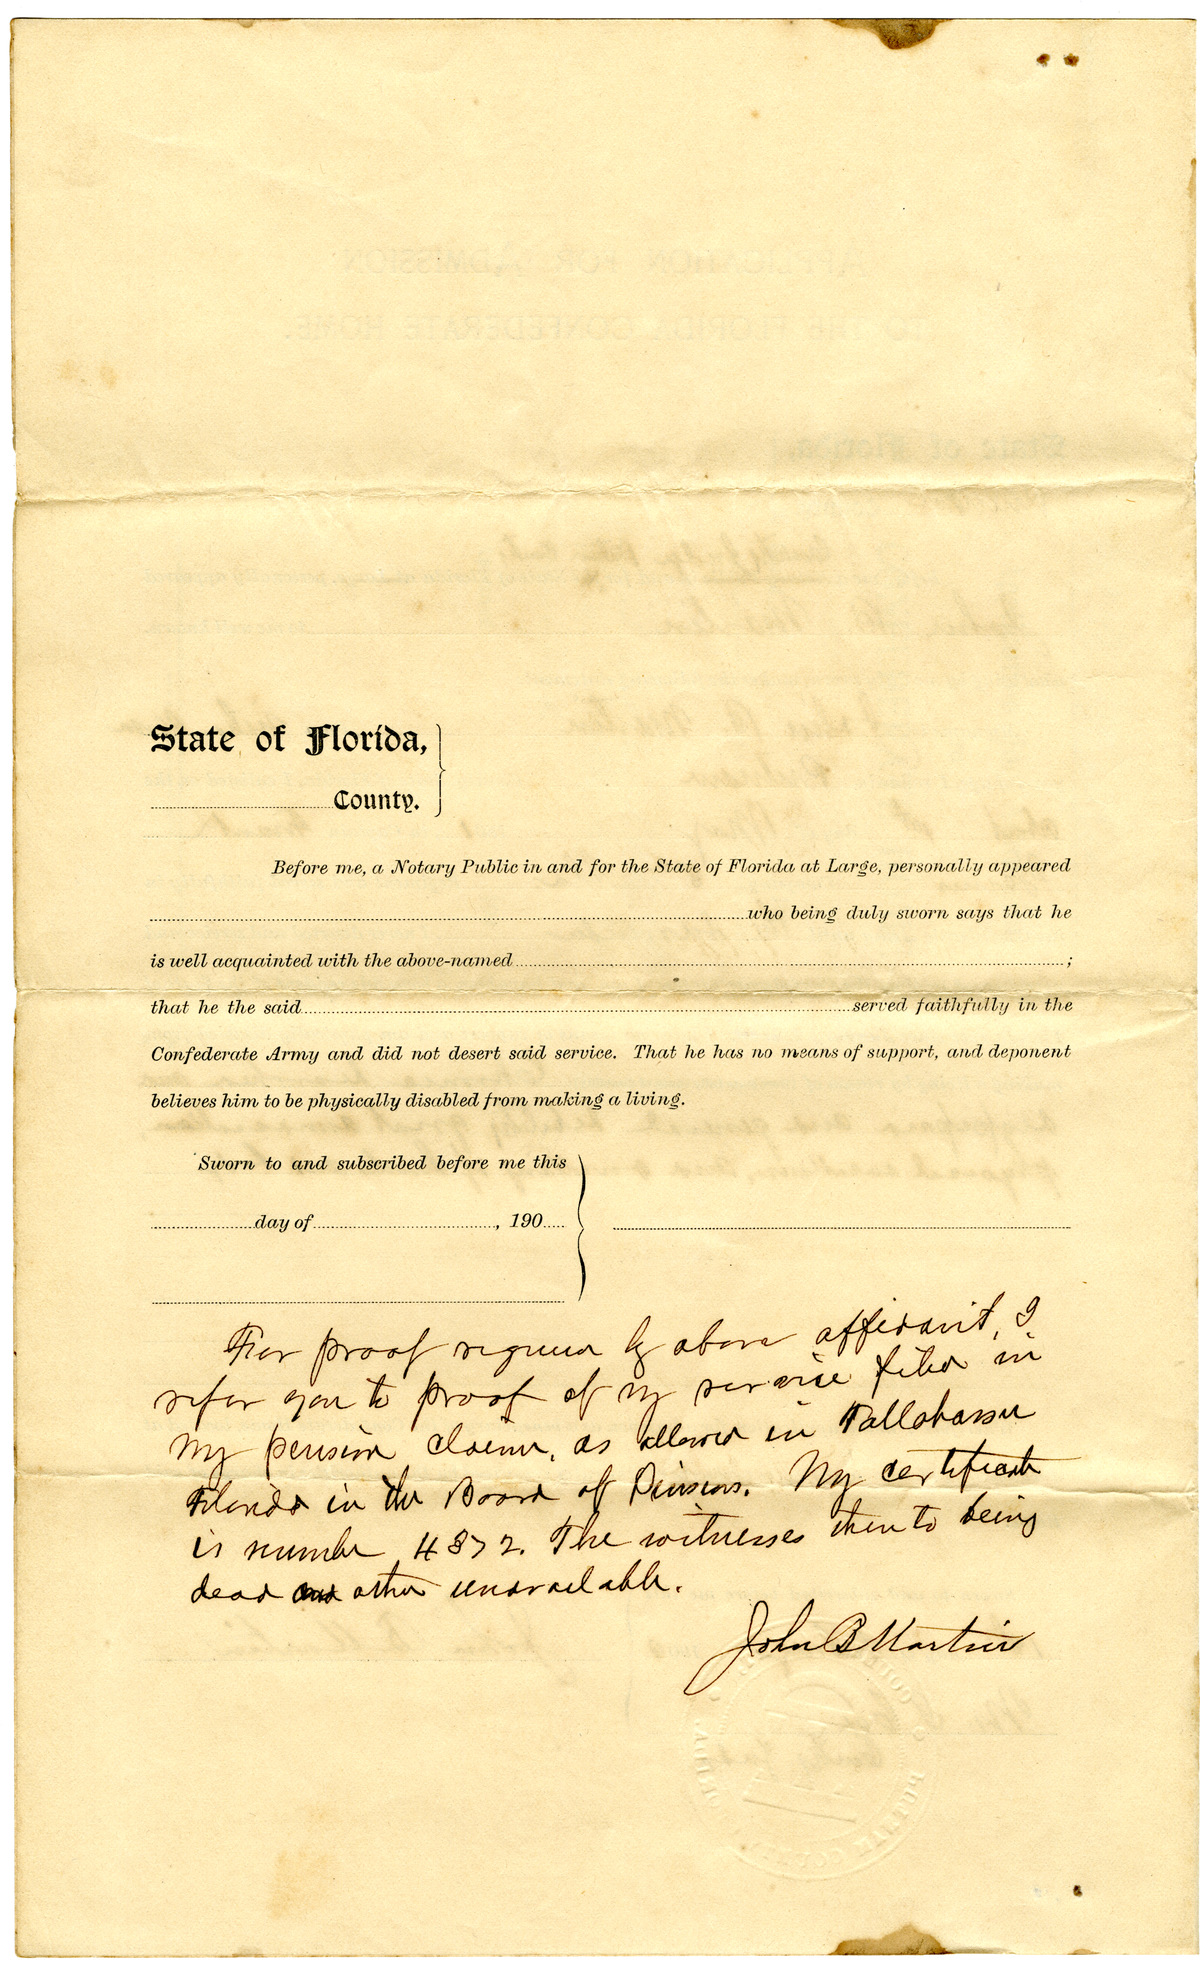 State of Florida,
County.
Before me, a Notary Public in and for the State of Florida at Large, personally appeared
who being duly sworn says that he
is well acquainted with the above-named ;
that he the said served faithfully in the
Confederate Army and did not desert said service. That he has no means of support, and deponent
believes him to be physically disabled from making a living.
Sworn to and subscribed before me this
day of , 190
For proof required by above affidavit, I
refer you to proof of my service filed in
my pension claim, as allowed in Tallahassee
Florida in the Board of Pensions. My certificate
is number 4872. The witnesses thereto being
dead and other unavailable.
John B Martin